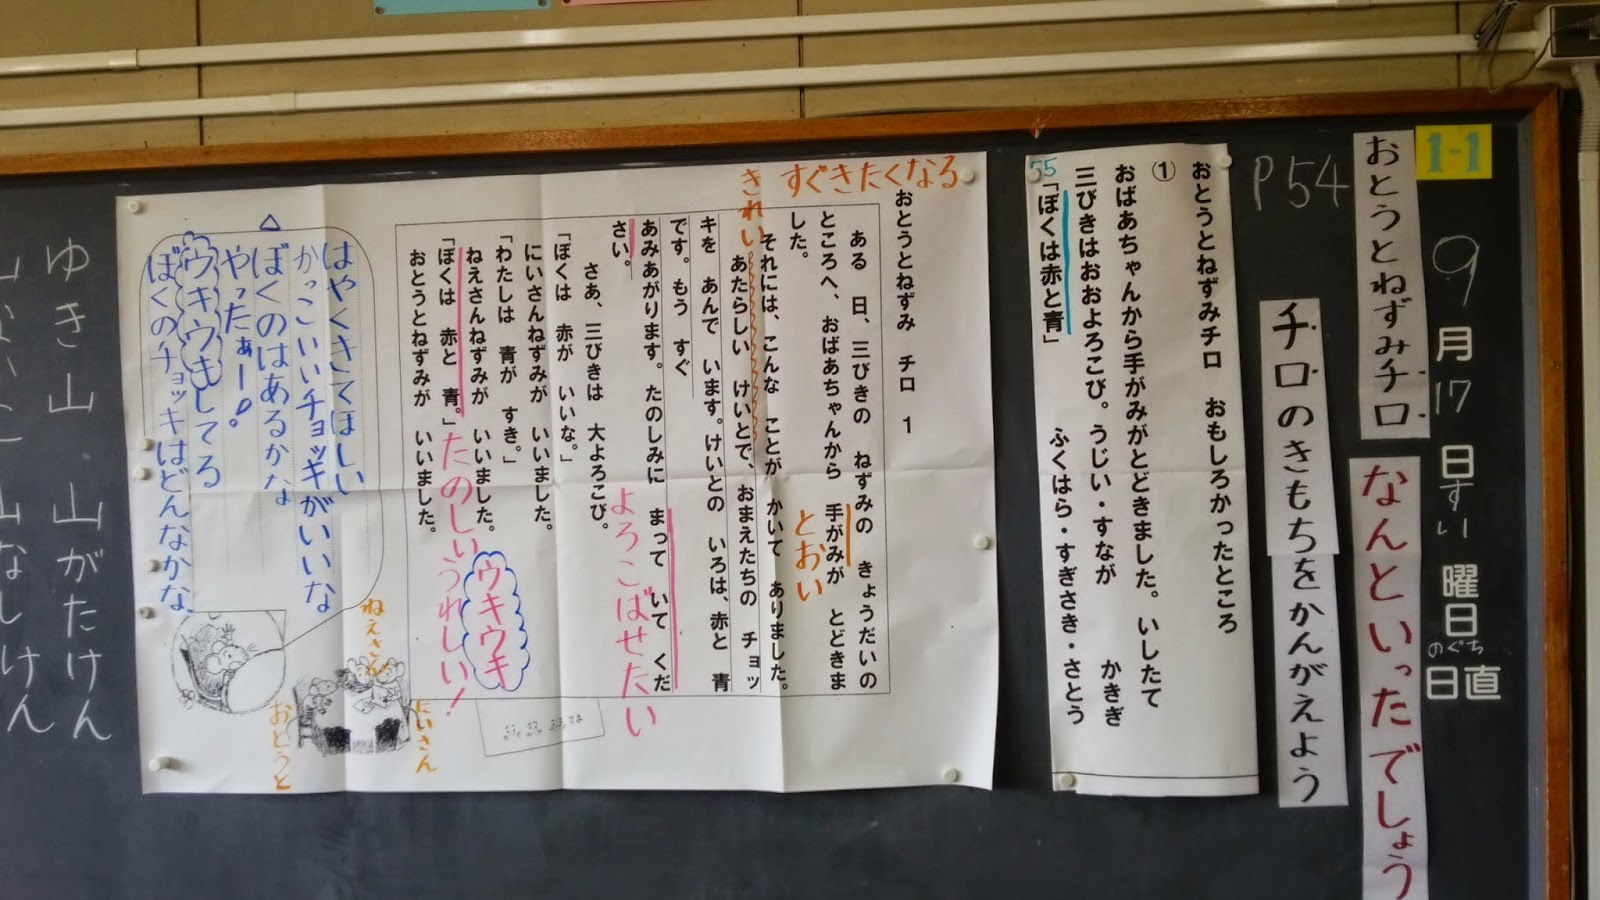 1-1
9月17日すい曜日
のぐち
日直
おとうとねずみチロ
なんといったでしょう
P54
チロのきもちをかんがえよう
おとうとねずみチロ　おもしろかったところ
①
おばあちゃんから手がみがとどきました。　いしたて
三びきはおおよろこび。うじい・すなが　かきぎ
55
「ぼくは赤と青」　ふくはら・すぎさき・さとう
すぐきたくなる
おとうとねずみ　チロ　1
ある　日、三びきの　ねずみの　きょうだいの
ところへ、おばあちゃんから　手がみが　とどきま
した。
とおい
それには、こんな　ことが　かいて　ありました。
きれい
あたらしい　けいとで、おまえたちの　チョッ
キを　あんで　います。けいとの　いろは、赤と　青
です。もう　すぐ
あみあがります。たのしみに　まって　いて　くだ
さい。
よろこばせたい
さあ、三びきは　大よろこび。
「ぼくは　赤が　いいな。」
にいさんねずみが　いいました。
「わたしは　青が　すき。」
ねえさんねずみが　いいました。
ウキウキ
「ぼくは　赤と　青。」
たのしいうれしい！
おとうとねずみが　いいました。
はやくきてほしい
かっこいいチョッキがいいな
ぼくのはあるかな
やったぁー！。
ウキウキしてる
ぼくのチョッキはどんなかな
にいさん
ねえさん
おとうと
ゆき山　山がたけん
山なしけん